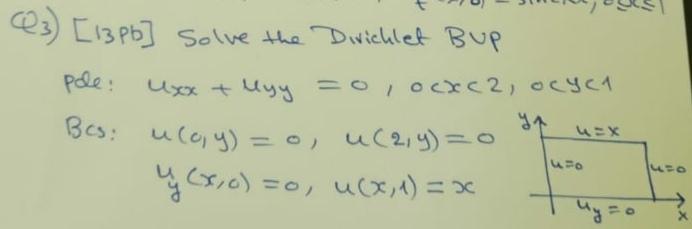 Q3) [13pb] Solve the Dirichlet BVP
pde: uxx + uyy = 0, 0<x<2, 0<y<1
Bcs: u(0,y) = 0, u(2,y) = 0
uy(x,0) = 0, u(x,1) = x
y
u=x
u=0
u=0
uy=0
x